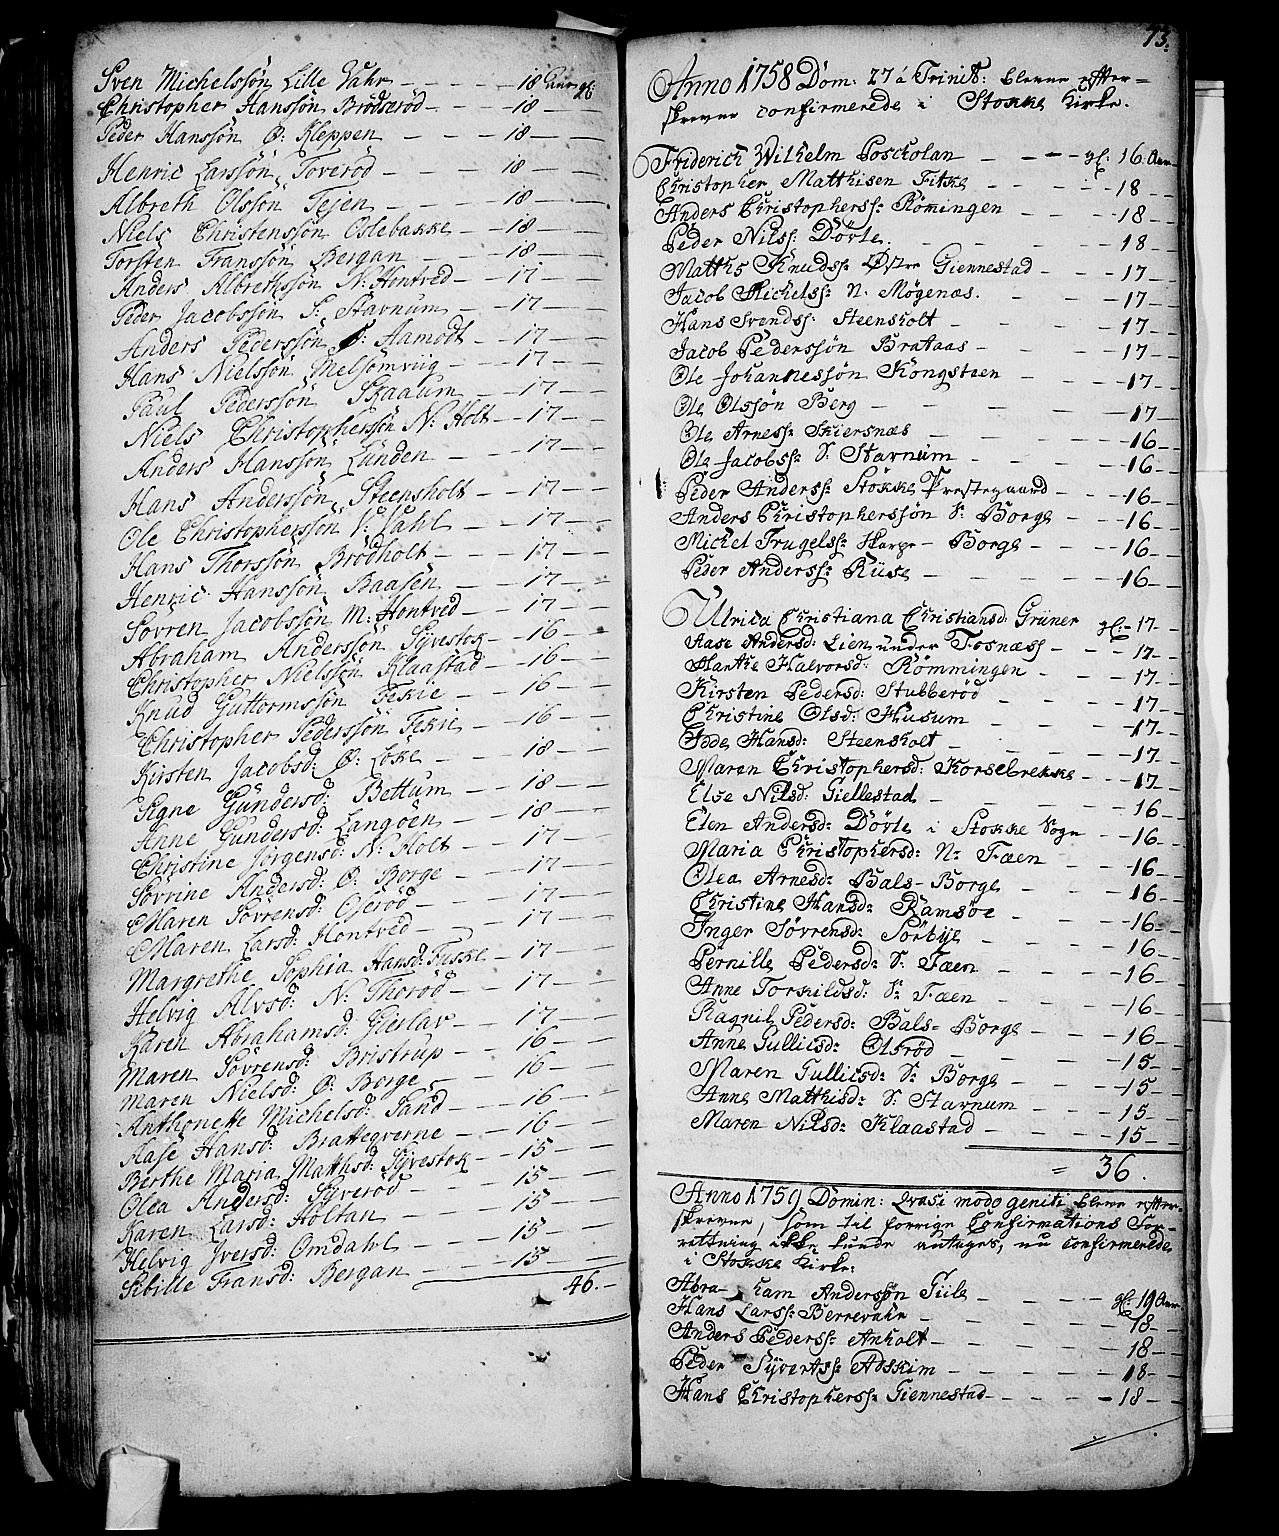 Sven Michelssön Lille Vahr — — 18 Aar gl:
Christopher Hanssön Brödseröd — 18 —
Peder Hanssön Ø: Kleppen — — — 18 —
Henric Larssön Toveröd — — — 18 —
Albreth Olssön Tejen — — — 18 —
Niels Christenssön Oslebakke — — 18 —
Torsten Franssön Bergan — — — 18 —
Anders Albrethssön N: Hontved — 17 —
Peder Jacobssön S: Stavnum — — 17 —
Anders Pederssön Aamodt — 17 —
Hans Nielssön Melsomviig — — 17 —
Paul Pederssön Skaaum — — 17 —
Niels Christopherssön N: Holt — 17 —
Anders Hanssön Lunden — — 17 —
Hans Anderssön Steensholt — — 17 —
Ole Christopherssön V: Vahl — — 17 —
Hans Thorssön Brödholt — — — 17 —
Henric Hanssön Baasen — — — 17 —
Sövren Jacobssön M: Hontved — — 17 —
Abraham Anderssön Syvestok — — 16 —
Christopher Nielssön Klaastad — — 16 —
Knud Guttormssön Fekie — — 16 —
Christopher Pederssön Fekie — — 16 —
Kirsten Jacobsd: Ø: Löke — — — 18 —
Signe Gundersd: Bettum — — — 18 —
Anne Gundersd: Langöen — — — 18 —
Christine Jörgensd: N: Holt — — 17 —
Sövrine Andersd: Ø: Borge — — — 17 —
Maren Sövrensd: Oseröd — — — 17 —
Maren Larsd: Hontved — — — 17 —
Margrethe Sophia Hansd: Fuske — 17 —
Helvig Alvsd: N: Thoröd — — — 17 —
Karen Abrahamsd: Gierlav — — — 17 —
Maren Sövrensd: Bristrup — — — 16 —
Maren Nielsd: Ø: Borge — — — 16 —
Anthonette Michelsd: Sand — — — 16 —
Aase Hansd: Brattegverne — — — 16 —
Berthe Maria Matthsd: Syvestok — — 15 —
Olea Andersd: Syveröd — — — 15 —
Karen Larsd: Holtan — — — 15 —
Helvig Iversd: Omdahl — — — 15 —
Sibille Fransd: Bergan — — — 15 —
46. —
73.
Anno 1758 Dom: 27 á Trinit: bleve efter-
skrevne confirmerede i Stokke Kirke.
Friderich Wilhelm Poscholan — — — gl: 16 Aar
Christopher Matthisen Fitke — — — 18 —
Anders Christopherss: Römingen — — — 18 —
Peder Nilss: Dörte. — — — 18 —
Matths Knudss: Östre Giennestad — — — 17 —
Jacob Michelss: N. Mögenæs. — — — 17 —
Hans Svendss: Steensholt — — — 17 —
Jacob Pederssön Brataas — — — 17 —
Ole Johannessön Kongsteen — — — 17 —
Ole Olssön Berg — — — 17 —
Ole Arness: Skiersnæs — — — 16 —
Ole Jacobss: S: Stavnum — — — 16 —
Peder Anderss: Stokke Prestegaard — — — 16 —
Anders Christopherssön S: Borge — — — 16 —
Michel Trugelss: Harpe-Borge — — — 16 —
Peder Anderss: Ruse — — — 16 —
Ulrica Christiana Christiansd: Grüner gl: 17 —
Aase Andersd: Lien under Fosnæss — — — 17 —
Marthe Halvorsd: Römmingen — — — 17 —
Kirsten Pedersd: Stubberöd — — — 17 —
Christine Olsd: Husum — — — 17 —
Idde Hansd: Steensholt — — — 17 —
Maren Christophersd: Korsebrekke — — — 17 —
Else Nilsd: Giellestad — — — 16 —
Elen Andersd: Dörte i Stokke Sogn — — 16 —
Maria Christophersd: N: Fæen — — — 16 —
Olea Arnesd: Bals-Borge — — — 16 —
Christine Hansd: Ramsöe — — — 16 —
Inger Sövrensd: Sörbye — — — 16 —
Pernille Pedersd: S: Fæen — — — 16 —
Anne Torkildsd: S: Fæen — — — 16 —
Ragnil Pedersd: Bals-Borge — — — 16 —
Anne Gullicsd: Olsröd — — — 15 —
Maren Gullicsd: S: Borge — — — 15 —
Anne Matthisd: S: Stavnum — — — 15 —
Maren Nilsd: Klaastad — — — 15 —
= 36.
Anno 1759 Domin: Qvasi modo geniti bleve efter-
skrevne, som til forrige Confirmations For-
rettning ikke kunde antages, nu confirmerede
i Stokke Kirke.
Abraham Anderssön Giile — — — gl: 19 Aar
Hans Larss: Berrevahr — — — 18 —
Anders Pederss: Anholt — — — 18 —
Peder Syvertss: Adskim — — — 18 —
Hans Christopherss: Giennestad — — — 18 —